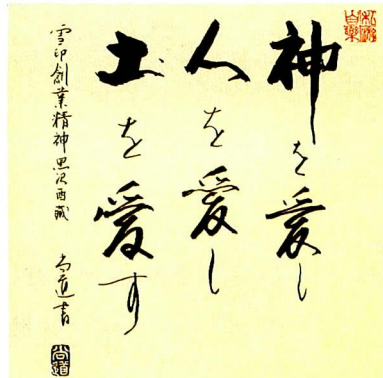 神を愛し
人を愛し
土を愛す
雪印創業精神 黒沢酉蔵
尚道書
尚道